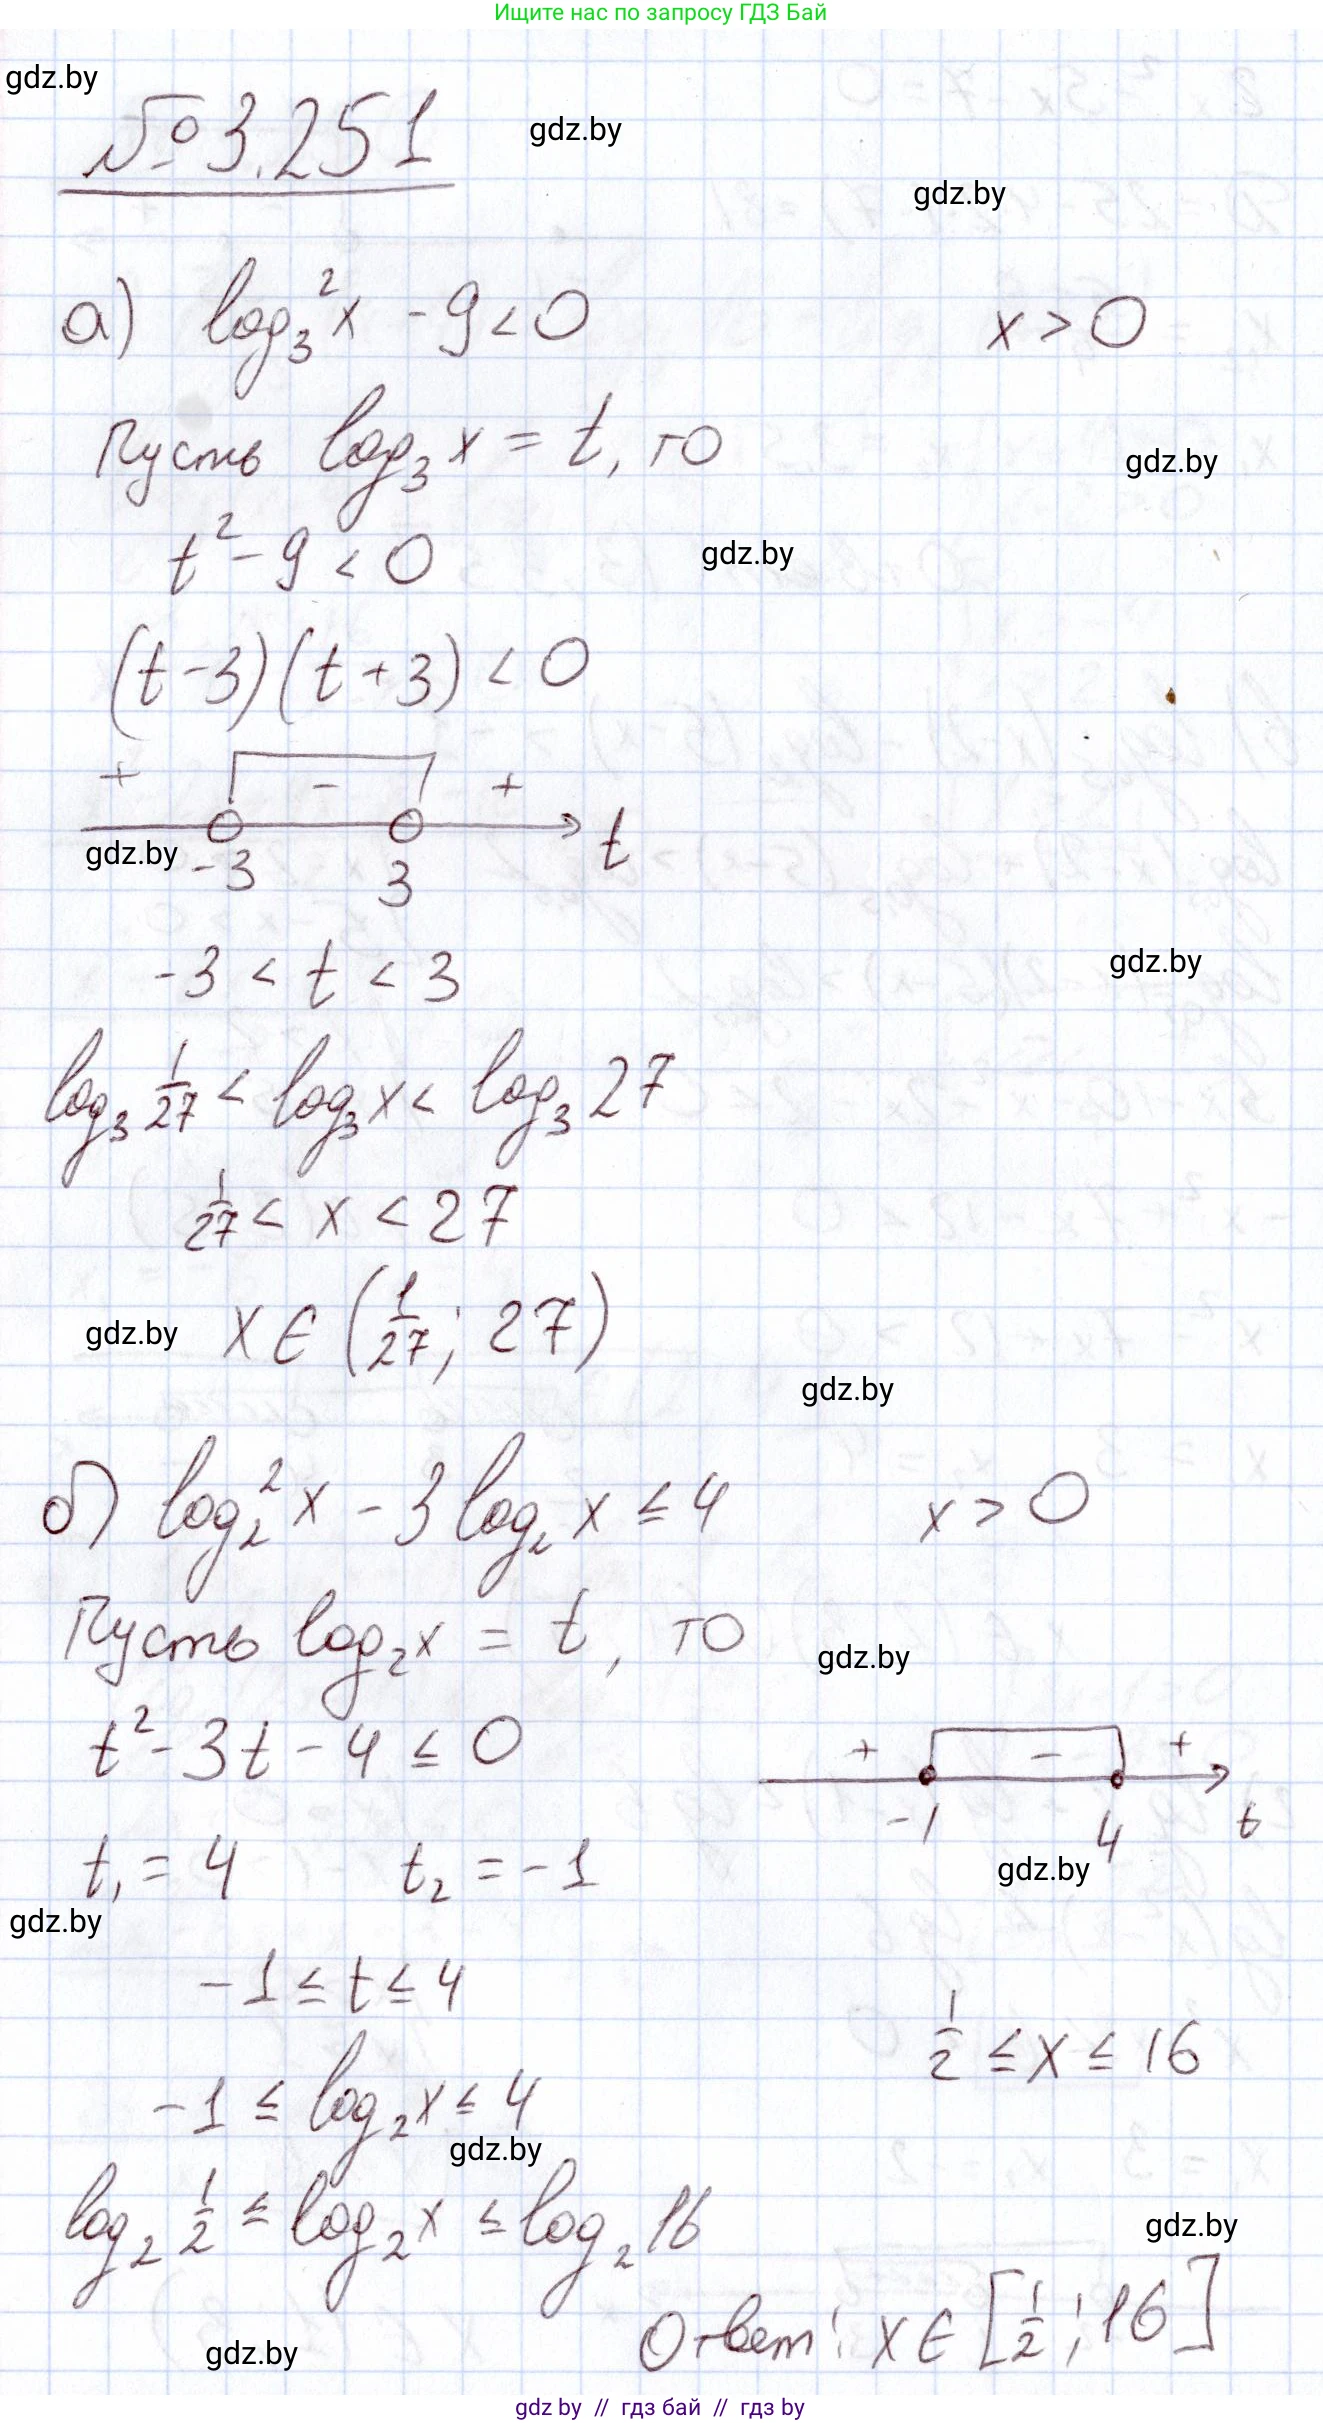 Ищите нас по запросу ГДЗ Бай
gdz.by
№ 3.251
gdz.by
gdz.by
а) log₃²x - 9 < 0
x > 0
Пусть log₃x = t, то
gdz.by
t² - 9 < 0
gdz.by
(t-3)(t+3) < 0
+ - +
gdz.by
-3 3 t
-3 < t < 3
gdz.by
log₃ 1/27 < log₃x < log₃ 27
1/27 < x < 27
gdz.by
x ∈ (1/27; 27)
gdz.by
б) log₂²x - 3log₂x ≤ 4
x > 0
Пусть log₂x = t, то
gdz.by
t² - 3t - 4 ≤ 0
+ - +
-1 4 t
gdz.by
t₁ = 4 t₂ = -1
gdz.by
-1 ≤ t ≤ 4
1/2 ≤ x ≤ 16
-1 ≤ log₂x ≤ 4
gdz.by
log₂ 1/2 ≤ log₂x ≤ log₂ 16
gdz.by
Ответ: x ∈ [1/2; 16]
gdz.by
gdz by // гдз бай // гдз by